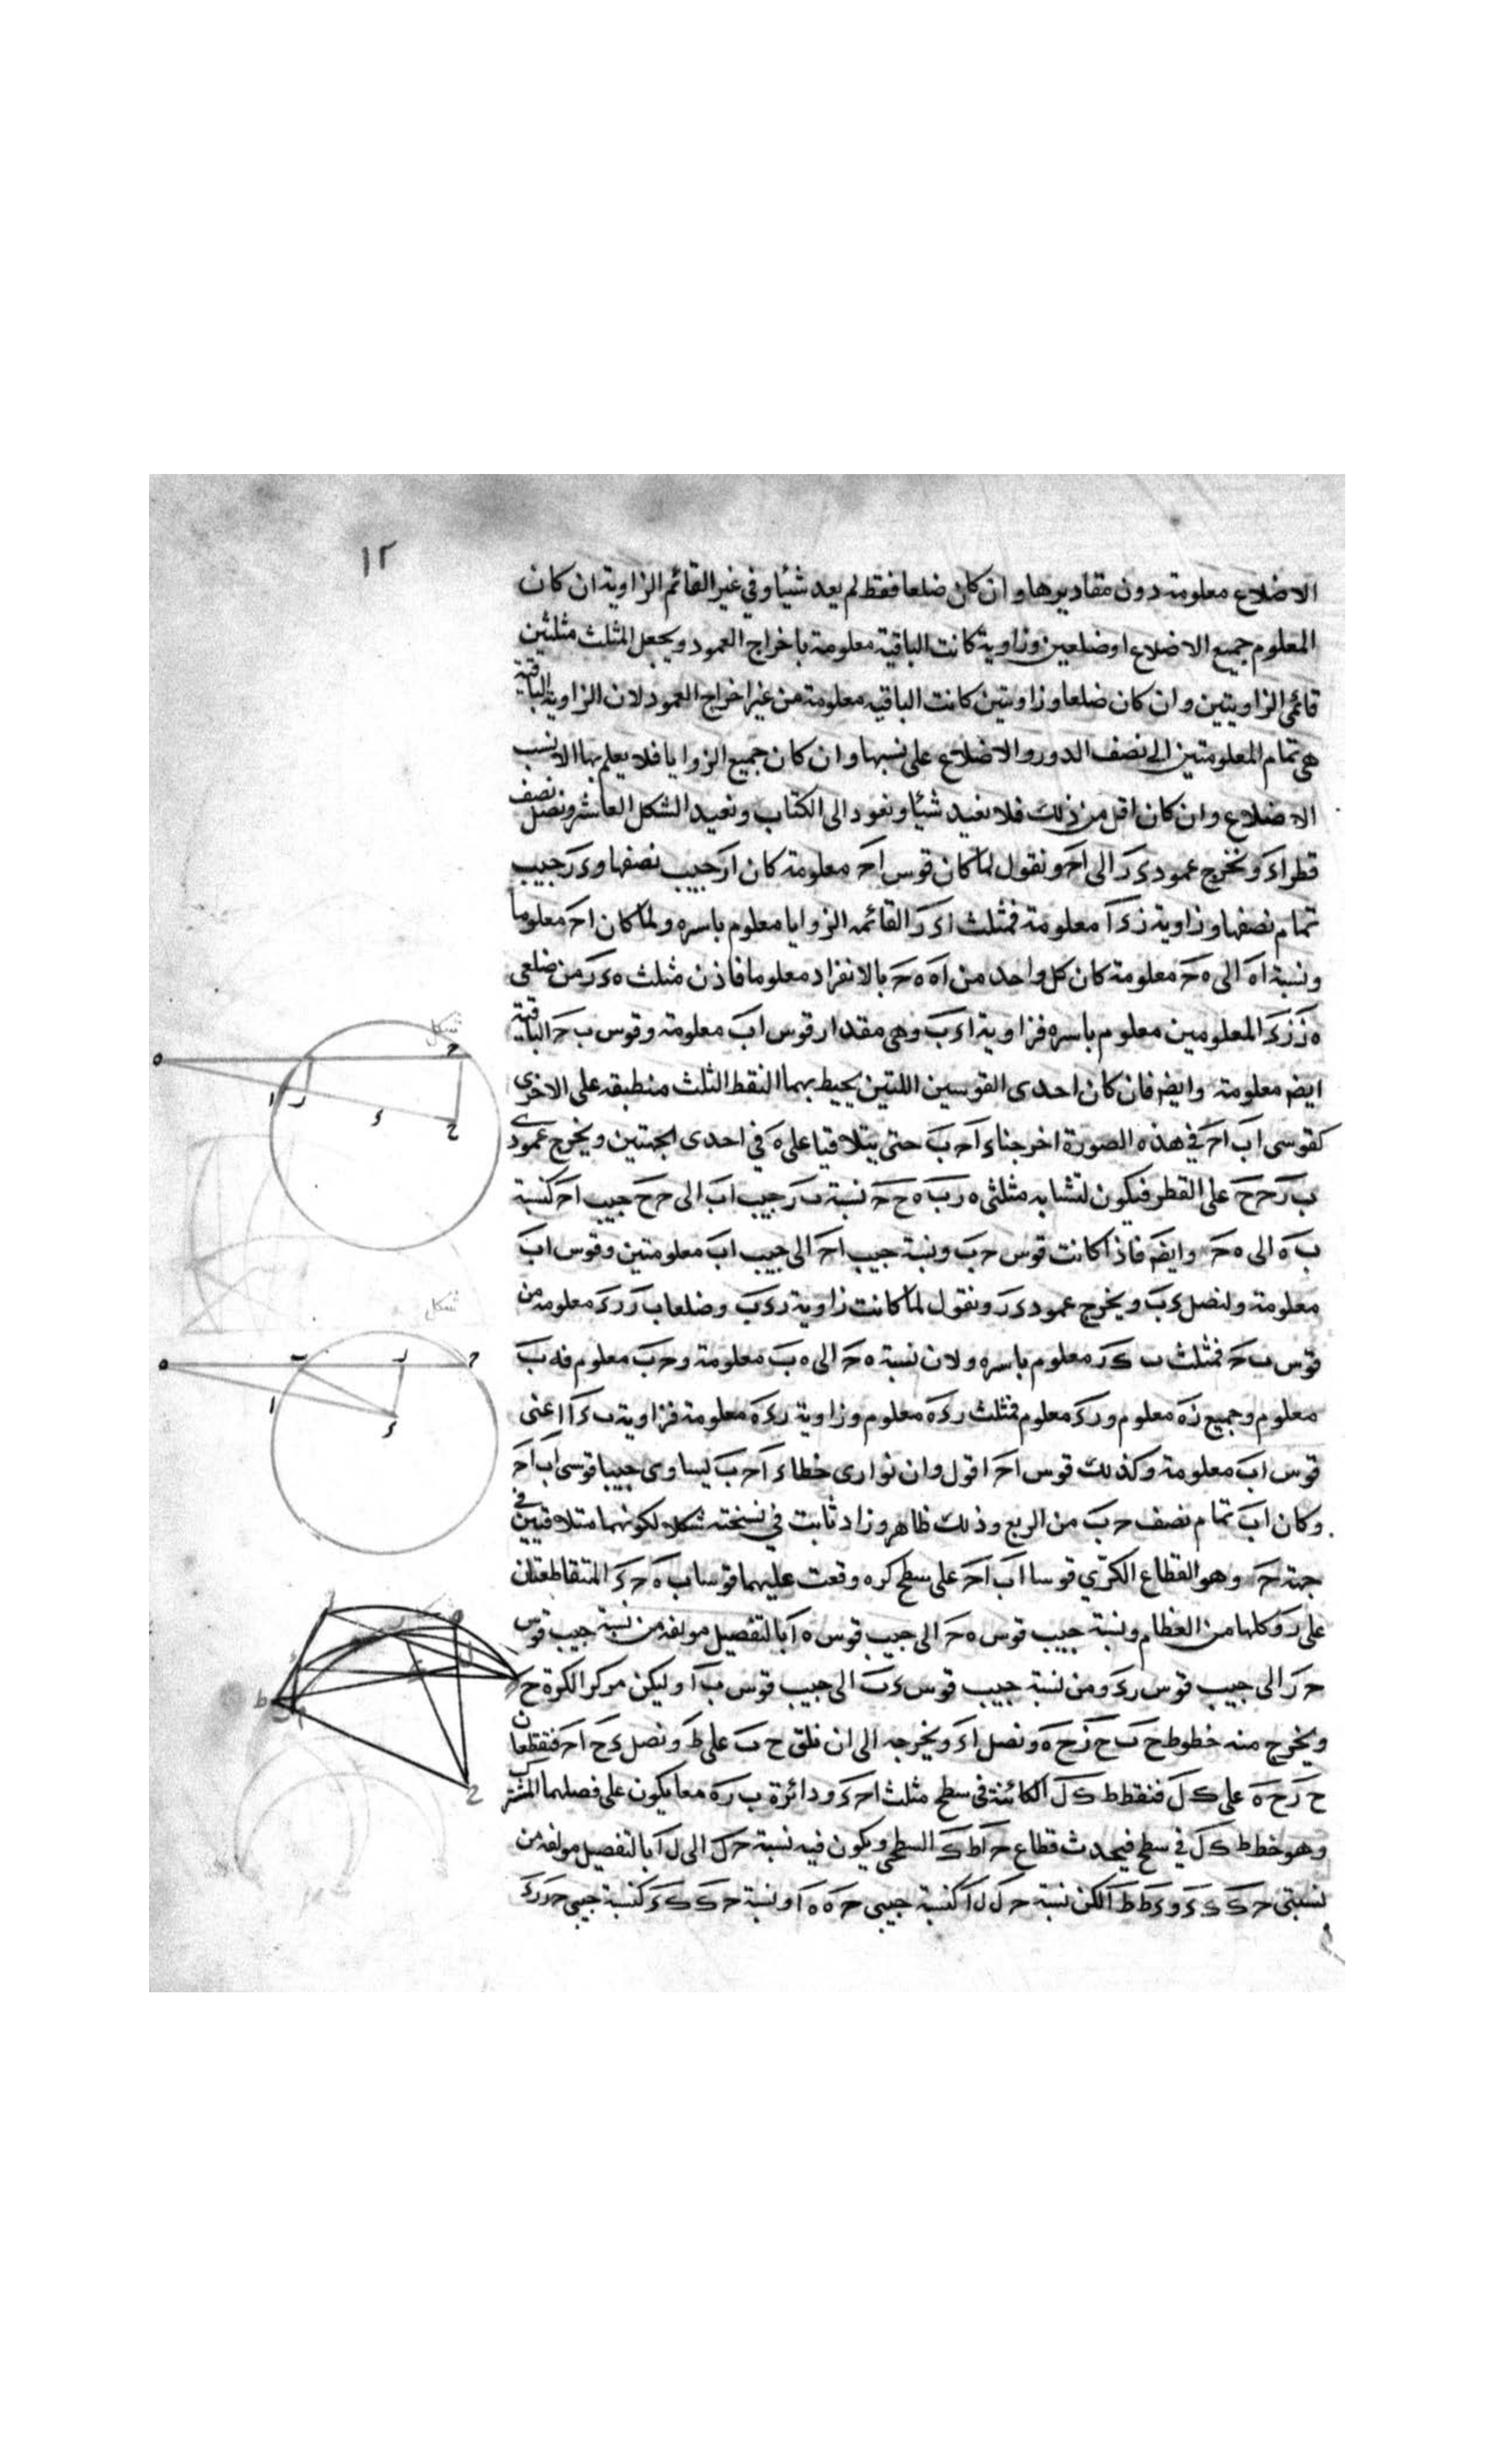 ١٢
الاضلاع معلومة دون مقاديرها وان كان ضلعا فقط لم يعد شيئا وفي غير القائم الزاوية ان كان
المعلوم جميع الاضلاع او ضلعين وزاوية كانت الباقية معلومة باخراج العمود ويجعل المثلث مثلثين
قائمى الزاويتين وان كان ضلعا وزاويتين كانت الباقيه معلومة من غير اخراج العمود لان الزاوية الباقية
هى تمام المعلومتين الى نصف الدور والاضلاع على نسبها وان كان جميع الزوايا فلا يعلم بها الا نسب
الاضلاع وان كان اقل من ذلك فلا نفيد شيئا ونعود الى الكتاب ونعيد الشكل العاشر ونصل نصف
قطر اء ونخرج عمود ءر الى اح ونقول لما كان قوس اح معلومة كان ار جيب نصفها وءر جيب
تمام نصفها وزاوية رءا معلومة فمثلث اءر القائمه الزوايا معلوم باسره ولما كان اح معلوما
ونسبة اه الى ه ح معلومة كان كل واحد من اه ه ح بالانفراد معلوما فاذن مثلث ه ءر من ضلعى
ه ر رء المعلومين معلوم باسره فزاوية اءب وهى مقدار قوس اب معلومة وقوس ب ح الباقية
ايضا معلومة وايضا فان كان احدى القوسين اللتين يحيط بهما النقط الثلث منطبقه على الاخرى
كقوسى اب اح في هذه الصورة اخرجنا ءا حب حتى يتلاقيا على ه في احدى الجهتين ويخرج عمودى
ب ر ح ح على القطر فيكون لتشابه مثلثى ه رب ه ح ح نسبة ب ر جيب اب الى ح ح جيب اح كنسبة
ب ه الى ه ح وايضا فاذا كانت قوس حب ونسبة جيب اح الى جيب اب معلومتين وقوس اب
معلومة ولنصل ءب ويخرج عمود ءر ونقول لما كانت زاوية رءب وضلعا ب ر رء معلومه من
قوس ب ح فمثلث ب ءر معلوم باسره ولان نسبة ه ح الى ه ب معلومة وحب معلوم فه ب
معلوم وجميع ره معلوم ورء معلوم فمثلث رءه معلوم وزاوية رءه معلومة فزاوية بءا اعنى
قوس اب معلومة وكذلك قوس اح اقول وان توازى خطا ءا حب ليساوى جيبا قوسى اب اح
وكان اب تمام نصف حب من الربع وذلك ظاهر وزاد ثابت في نسخته شكلا لكونهما متلاقيين في
جهة ح وهو القطاع الكرّي قوسا اب اح على سطح كره وقعت عليهما قوسا ب ه ح ء المتقاطعتان
على ر وكلها من العظام ونسبة جيب قوس ه ح الى جيب قوس ه ا بالتفصيل مولفه من نسبة جيب قوس
ح ر الى جيب قوس رء ومن نسبة جيب قوس ءب الى جيب قوس ب ا وليكن مركز الكرة ح
ويخرج منه خطوط ح ب ح ر ح ه ونصل اء ويخرجه الى ان نلقى ح ب على ط ونصل ءح اح فنقطعان
ح ر ح ه على ك ل فنقط ط ك ل الكائنة فى سطح مثلث احء ودائرة ب ره معا يكون على فصلهما المشترك
وهو خط ط ك ل في سطح فيحدث قطاع ح ا ط ك السطحى ويكون فيه نسبة ح ل الى ل ا بالتفصيل مولفه من
نسبتى ح ك ك ء وء ط ط ا لكن نسبة ح ل ل ا كنسبة جيبى ح ه ه ا ونسبة ح ك ك ء كنسبة جيبى ح ر رء
شكل
ه
ا
ر
ح
ء
ح
شكل
ه
ب
ر
ح
ا
ء
ط
ح